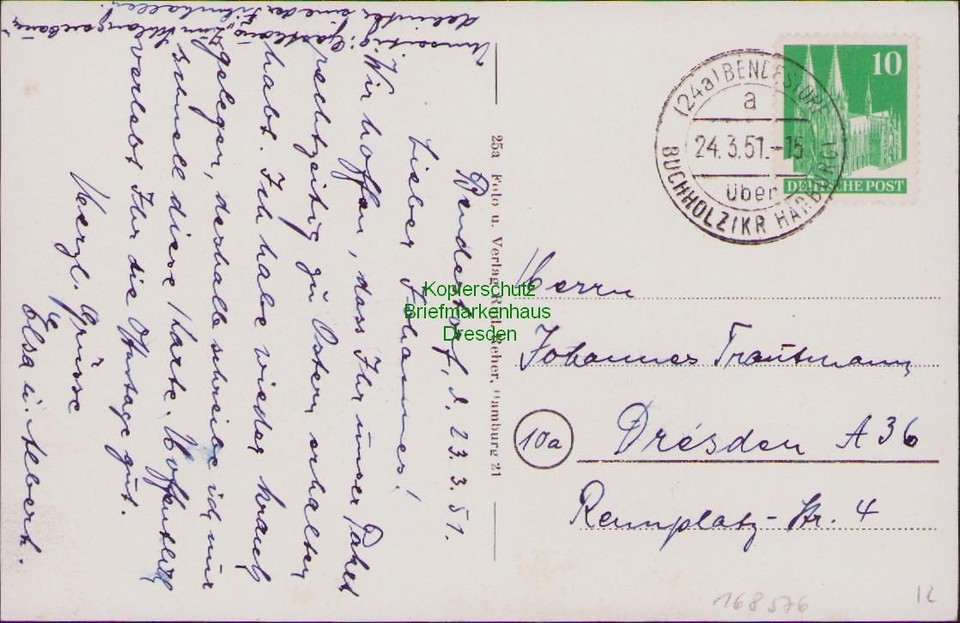 Bendestorf, d. 23.3.51.
Lieber Johannes!
Wir hoffen, dass Ihr unser Paket
rechtzeitig zu Ostern erhalten
habt. Ich habe wieder krank
gelegen, deshalb schreibe ich nur
schnell diese Karte. Hoffentlich
verlebt Ihr die Festtage gut.
Herzl. Grüsse
Elsa u. Albert.
Umseitig: Gasthaus "Zum Schlangenbaum"
dahinter eine der Filmhallen!
25a Foto u. Verlag Rud. Reher, Hamburg 21
10
DEUTSCHE POST
(24a) BENDESTORF
a
24.3.51.-15
über
BUCHHOLZ (KR HARBURG)
Herrn
Johannes Trautmann
10a
Dresden A 36
Rennplatz-Str. 4
Kopierschutz
Briefmarkenhaus
Dresden
168576